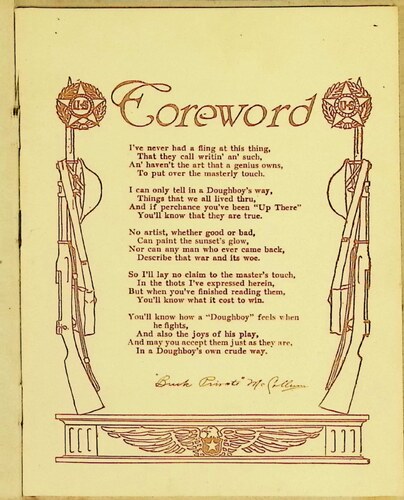 U·S
U·S
Foreword
I've never had a fling at this thing,
That they call writin' an' such,
An' haven't the art that a genius owns,
To put over the masterly touch.
I can only tell in a Doughboy's way,
Things that we all lived thru,
And if perchance you've been "Up There"
You'll know that they are true.
No artist, whether good or bad,
Can paint the sunset's glow,
Nor can any man who ever came back,
Describe that war and its woe.
So I'll lay no claim to the master's touch,
In the thots I've expressed herein,
But when you've finished reading them,
You'll know what it cost to win.
You'll know how a "Doughboy" feels when
he fights,
And also the joys of his play,
And may you accept them just as they are,
In a Doughboy's own crude way.
"Buck Private" McCollum